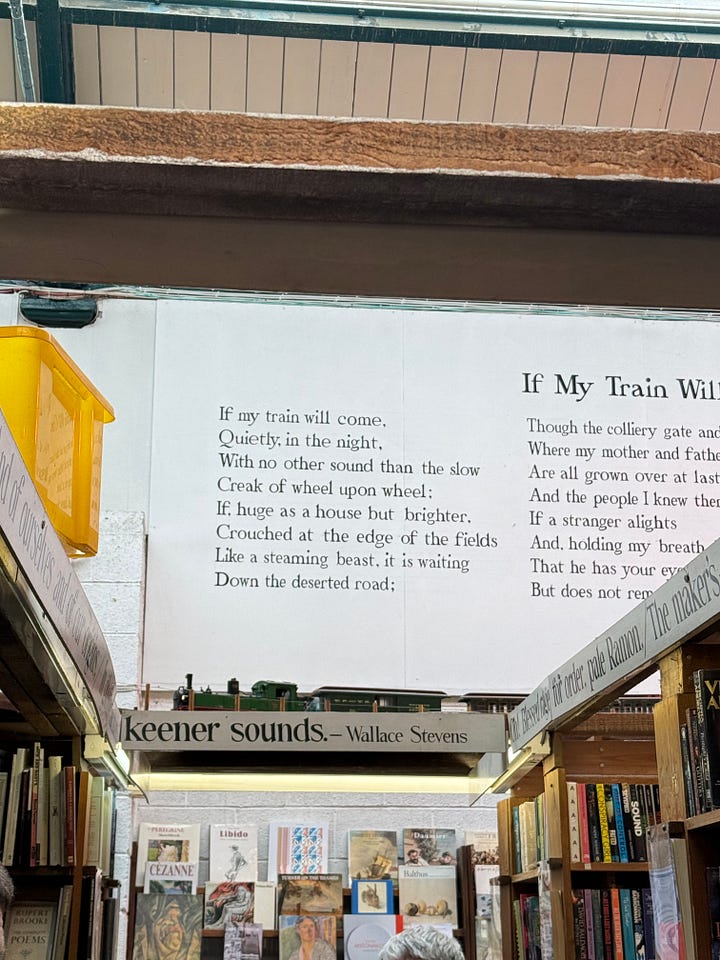 If My Train Will
If my train will come,
Quietly, in the night,
With no other sound than the slow
Creak of wheel upon wheel;
If, huge as a house but brighter,
Crouched at the edge of the fields
Like a steaming beast, it is waiting
Down the deserted road;
Though the colliery gate and
Where my mother and fathe
Are all grown over at last
And the people I knew ther
If a stranger alights
And, holding my breath
That he has your eye
But does not rem
d of ourselves and of our
for order, pale Ramon, / The maker's
keener sounds. – Wallace Stevens
PEREGRINE
CEZANNE
Libido
Daumier
TURNER ON THE THAMES
Balthus
SOUND
RUPERT
BROOKE
POEMS